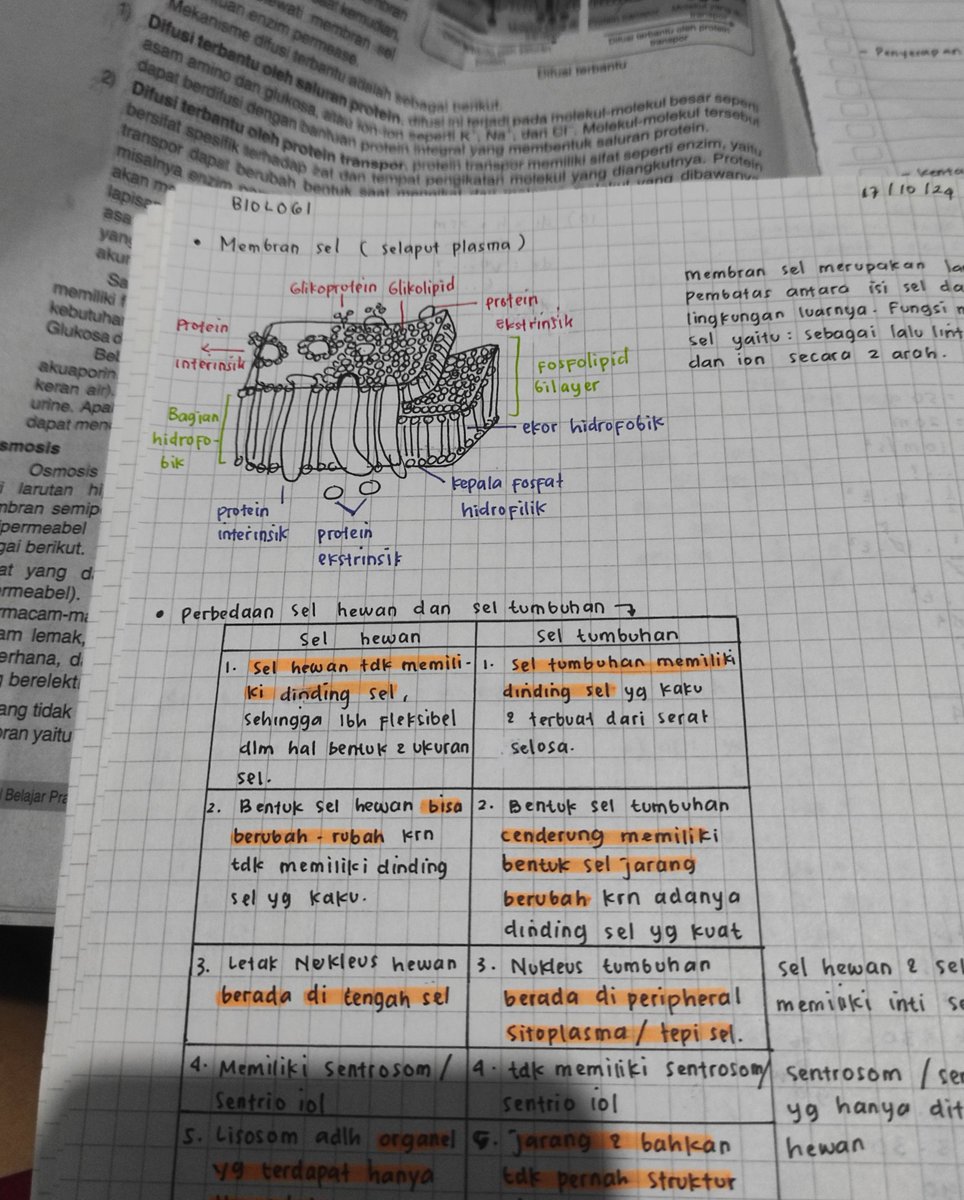 kemudian,
membran
enzim permease.
membran sel
Mekanisme difusi terbantu adalah sebagai berikut.
1) Difusi terbantu oleh saluran protein, difusi ini terjadi pada molekul-molekul besar seperti
asam amino dan glukosa, atau ion-ion seperti K⁺, Na⁺, dan Cl⁻. Molekul-molekul tersebut
dapat berdifusi dengan bantuan protein integral yang membentuk saluran protein.
2) Difusi terbantu oleh protein transpor, protein transpor memiliki sifat seperti enzim, yaitu
bersifat spesifik terhadap zat dan tempat pengikatan molekul yang diangkutnya. Protein
transpor dapat berubah bentuk saat
misalnya enzim
akan
Difusi terbantu
memiliki
Glukosa
akuaporin
keran air).
urine. Apa
dapat
smosis
Osmosis
larutan
mbran semip
permeabel
gai berikut.
at yang
rmeabel).
am lemak,
erhana,
berelekt
ang tidak
ran yaitu
Belajar
- Penyerapan
BIOLOGI
17/10/24
• Membran sel (selaput plasma)
Glikoprotein
Glikolipid
protein
ekstrinsik
Protein
interinsik
Fosfolipid
bilayer
Bagian
hidrofo-
bik
ekor hidrofobik
kepala fosfat
hidrofilik
protein
interinsik
protein
ekstrinsik
membran sel merupakan la
pembatas antara isi sel da
lingkungan luarnya. Fungsi m
sel yaitu: sebagai lalu lint
dan ion secara 2 arah.
• Perbedaan sel hewan dan sel tumbuhan →
sel hewan
1. Sel hewan tdk memili-
ki dinding sel,
sehingga lbh fleksibel
dlm hal bentuk & ukuran
sel.
sel tumbuhan
1. sel tumbuhan memiliki
dinding sel yg kaku
& terbuat dari serat
selosa.
2. Bentuk sel hewan bisa
berubah-rubah krn
tdk memiliki dinding
sel yg kaku.
2. Bentuk sel tumbuhan
cenderung memiliki
bentuk sel jarang
berubah krn adanya
dinding sel yg kuat
3. Letak Nekleus hewan
berada di tengah sel
3. Nukleus tumbuhan
berada di peripheral
sitoplasma / tepi sel.
sel hewan & sel
memiliki inti se
4. Memiliki sentrosom /
sentrio iol
4. tdk memiliki sentrosom/
sentrio iol
sentrosom / sen
yg hanya dit
hewan
5. Lisosom adlh organel
yg terdapat hanya
5. jarang & bahkan
tdk pernah struktur